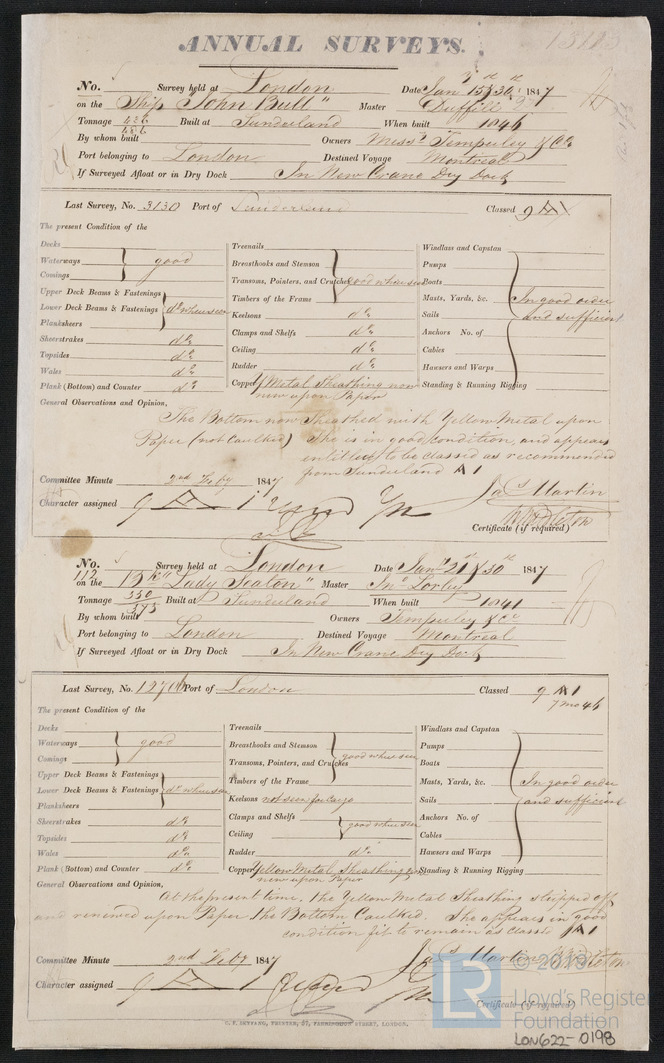 ANNUAL SURVEYS.
No. Survey held at London Date Jany 15th & 30th 1847
on the Ship "John Bull" Master Duffill
Tonnage 426 Built at Sunderland When built 1846
By whom built Owners Messrs Temperley & Co
Port belonging to London Destined Voyage Montreal
If Surveyed Afloat or in Dry Dock In New Crane Dry Dock
Last Survey, No. 3130 Port of Sunderland Classed 9 A 1
The present Condition of the
Decks
Waterways good
Comings
Upper Deck Beams & Fastenings
Lower Deck Beams & Fastenings do where seen
Planksheers
Sheerstrakes do
Topsides do
Wales do
Plank (Bottom) and Counter do
Treenails
Breasthooks and Stemson
Transoms, Pointers, and Crutches good where seen
Timbers of the Frame
Keelsons do
Clamps and Shelfs do
Ceiling do
Rudder do
Copper Y Metal Sheathing now
new upon Paper
Windlass and Capstan
Pumps
Boats
Masts, Yards, &c. In good order
Sails and sufficient
Anchors No. of
Cables
Hausers and Warps
Standing & Running Rigging
General Observations and Opinion,
The Bottom now Sheathed with Yellow Metal upon
Paper (not Caulked) She is in good condition, and appears
entitled to be classed as recommended
from Sunderland A 1
Committee Minute 2nd Feby 1847
Character assigned 9 A 1
Jas Martin
Certificate (if required)
No. 112 Survey held at London Date Jany 21st & 30th 1847
on the Bk "Lady Seaton" Master Jno Lorley
Tonnage 330 Built at Sunderland When built 1841
373
By whom built Owners Temperley & Co
Port belonging to London Destined Voyage Montreal
If Surveyed Afloat or in Dry Dock In New Crane Dry Dock
Last Survey, No. 12706 Port of London Classed 9 A 1
7 mo 46
The present Condition of the
Decks
Waterways good
Comings
Upper Deck Beams & Fastenings
Lower Deck Beams & Fastenings do where seen
Planksheers
Sheerstrakes do
Topsides do
Wales do
Plank (Bottom) and Counter do
Treenails
Breasthooks and Stemson good where seen
Transoms, Pointers, and Crutches
Timbers of the Frame
Keelsons not seen for Cargo
Clamps and Shelfs good where seen
Ceiling
Rudder do
Copper Yellow Metal Sheathing
new upon Paper
Windlass and Capstan
Pumps
Boats
Masts, Yards, &c. In good order
Sails and sufficient
Anchors No. of
Cables
Hausers and Warps
Standing & Running Rigging
General Observations and Opinion,
At the present time, the Yellow Metal Sheathing stripped off
and renewed upon Paper, the Bottom Caulked. She appears in good
condition fit to remain as classed A 1
Committee Minute 2nd Feby 1847
Jas Martin
Character assigned 9 A 1
Certificate (if required)
LR © 2019
Lloyd's Register
Foundation
LON622-0198